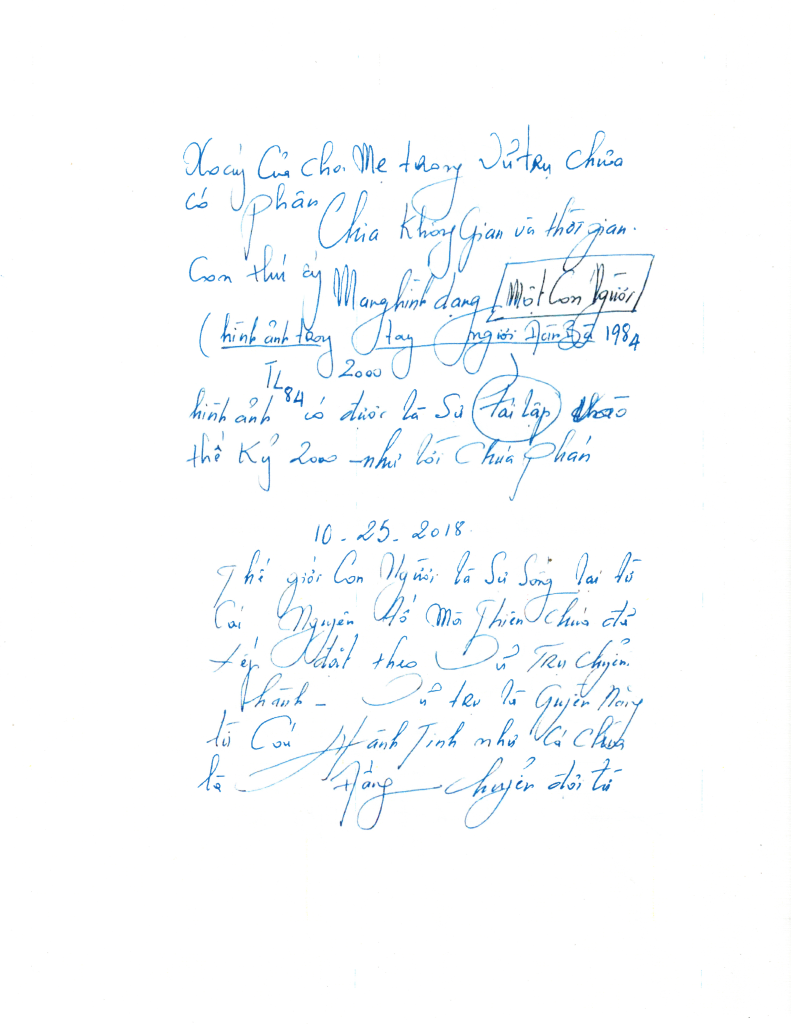 Của Cha Mẹ trong Vũ trụ Chưa
có phân
Chia Không Gian và thời gian.
Con thú ấy Mang hình dạng Một Con Người
(hình ảnh trong tay người Đàn Bà 1984
TL84 2000
hình ảnh có được là Sự tái lập vào
thế Kỷ 2000 - như lời Chúa phán
10-25-2018
Thế giới Con Người là Sự Sống lại từ
Cái Nguyên tố Mà Thiên Chúa đã
xếp đặt theo Vũ Trụ Chuyển.
thành - Vũ trụ là Quyền Năng
từ Các Hành Tinh như Cả Chúa
là Đấng chuyển đổi từ